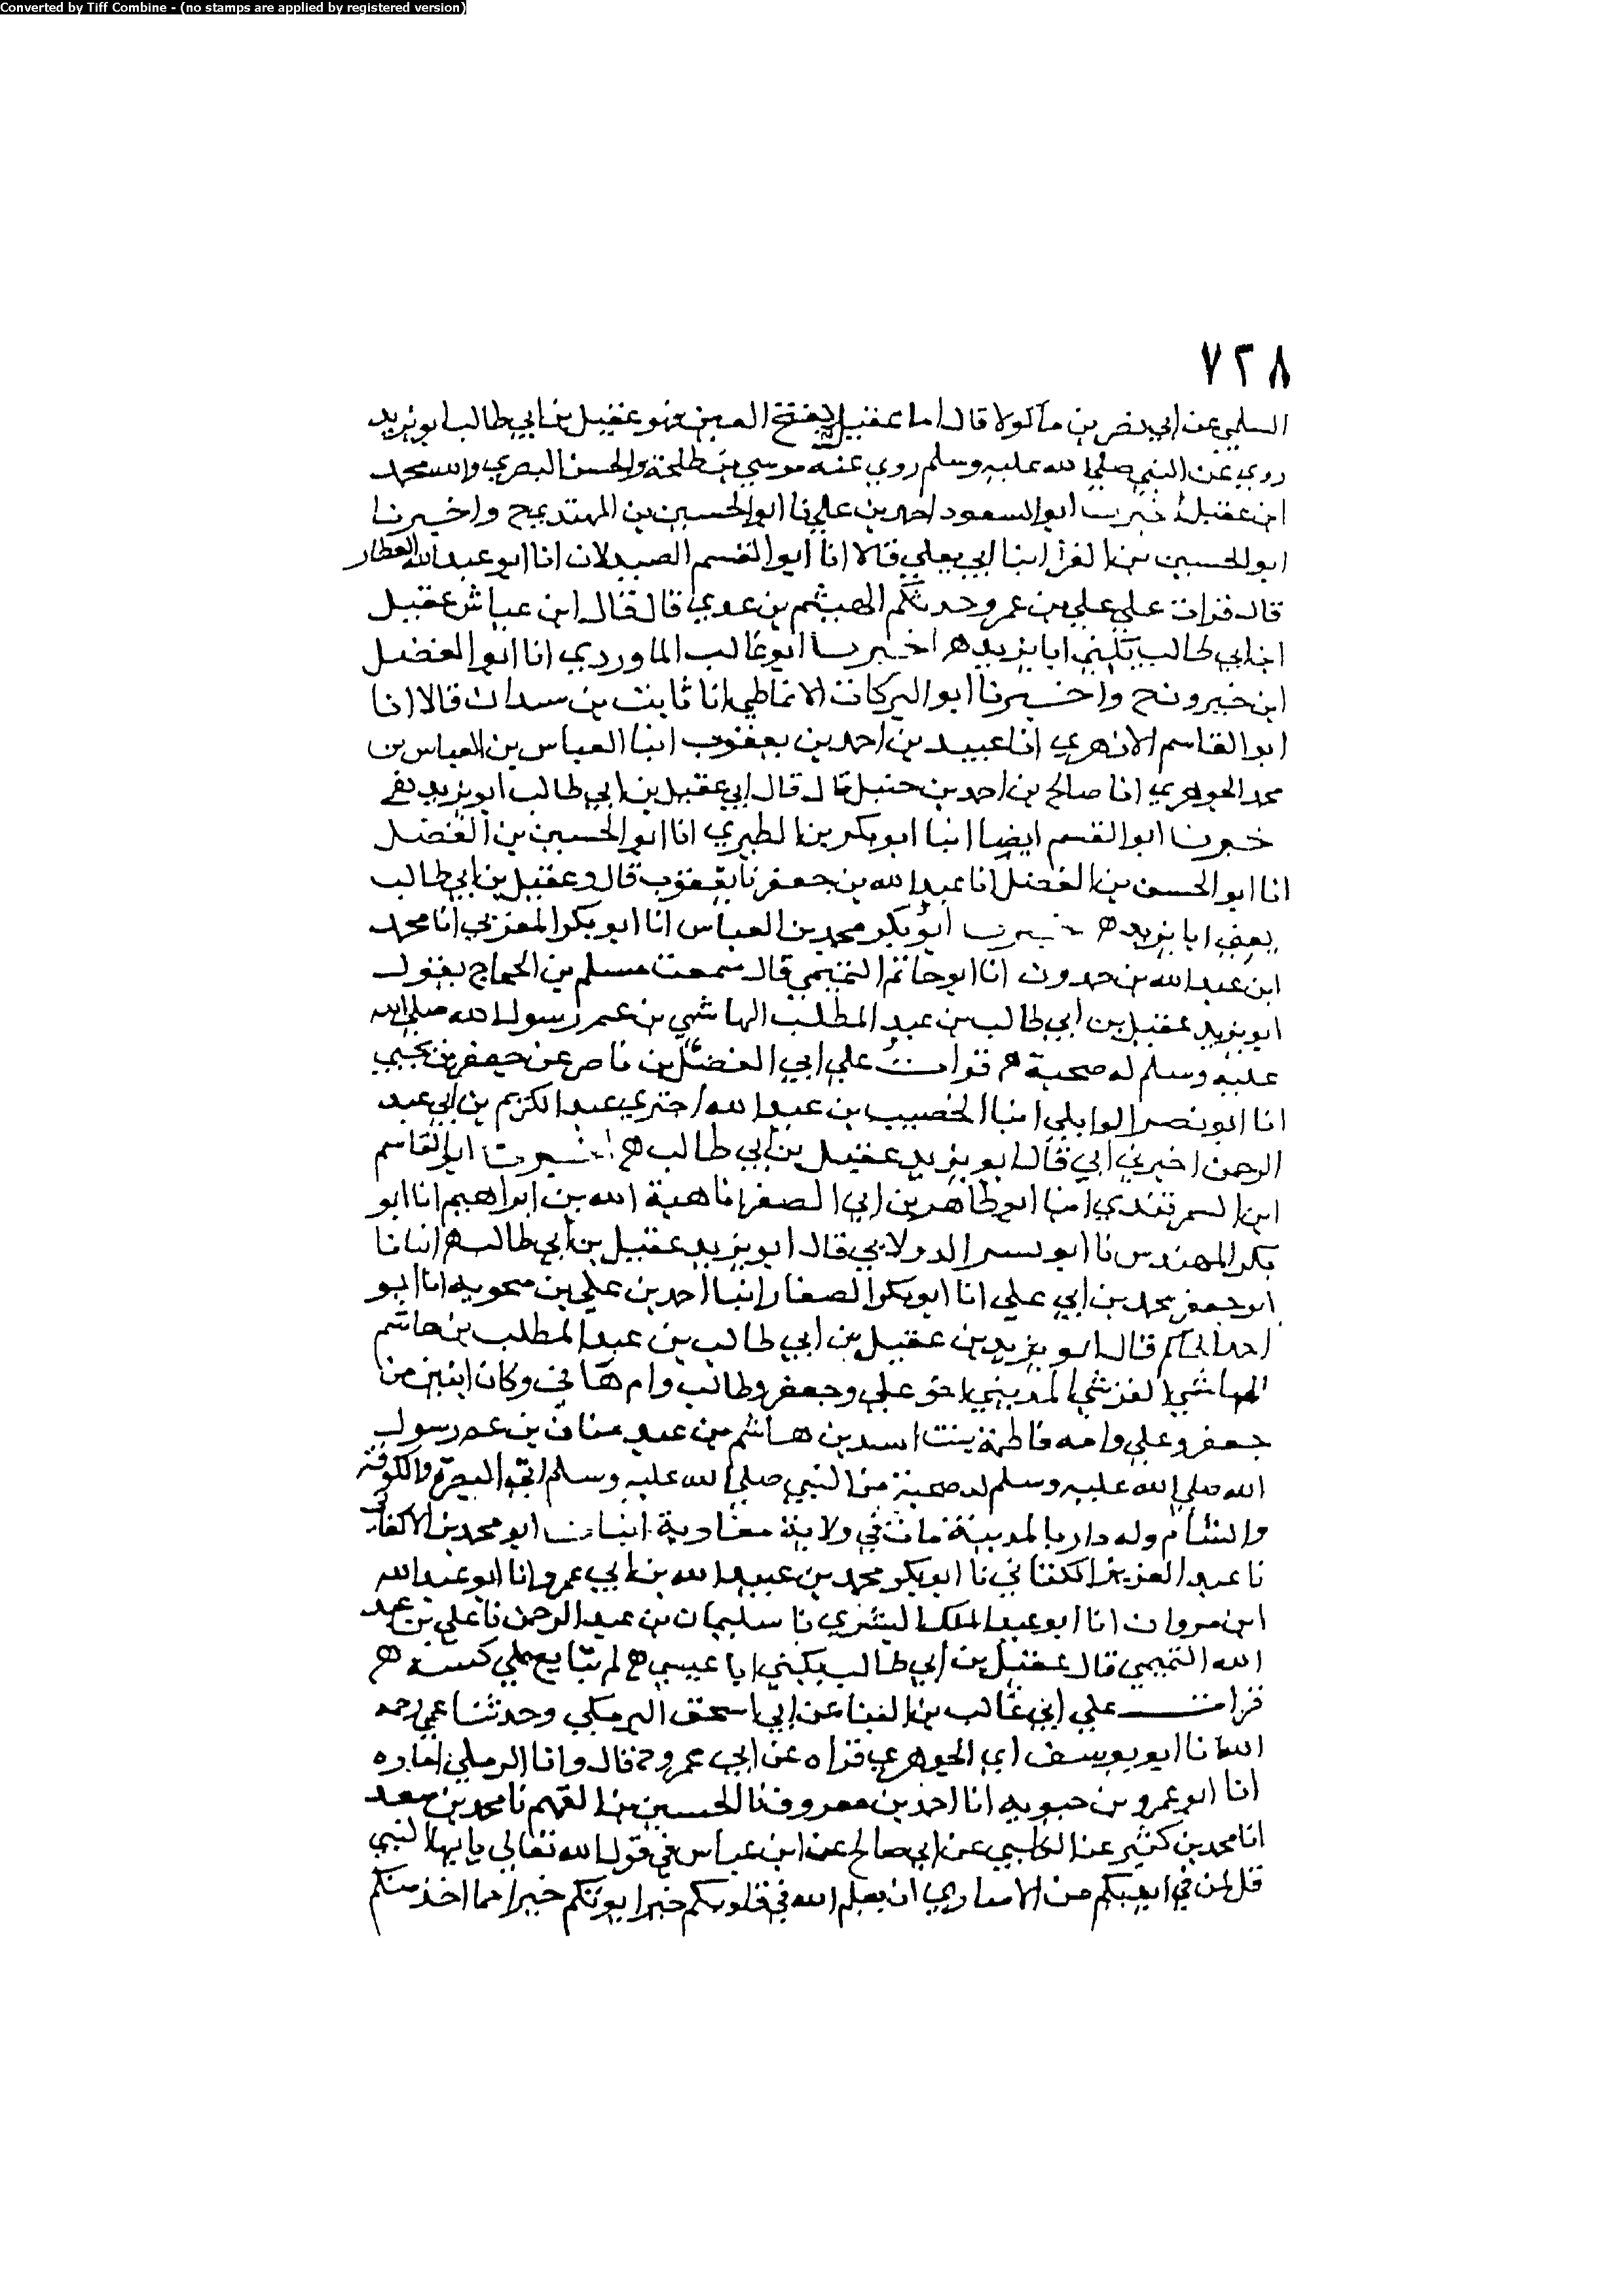 Converted by Tiff Combine - (no stamps are applied by registered version)
٧٢٨
السلمي عن ابي نصر بن ماكولا قال اما عقيل بفتح العين فهو عقيل بن ابي طالب ابو يزيد
روي عن النبي صلي الله عليه وسلم روي عنه موسي بن طلحة والحسن البصري وابنه محمد
ابن عقيل اخبرنا ابو السعود احمد بن علي نا ابو الحسين بن المهتدي ح واخبرنا
ابو الحسين بن الفرا انبا ابي يعلي قالا انا ابو القسم الصيدلان انا ابو عبد الله العطار
قال قرات علي علي بن عمرو حدثكم الهيثم بن عدي قال قال ابن عياش عقيل
ابن ابي طالب يكني ابا يزيد ه اخبرنا ابو غالب الماوردي انا ابو الفضل
ابن خيرون ح واخبرنا ابو البركات الانماطي انا ثابت بن بندات قالا انا
ابو القاسم الازهري انا عبيد بن احمد بن يعقوب انبا العباس بن العباس بن
محمد الجوهري انا صالح بن احمد بن حنبل قال قال ابي عقيل بن ابي طالب ابو يزيد
خبرنا ابو القسم ايضا انبا ابو بكر بن الطبري انا ابو الحسين بن الفضل
انا ابو الحسن بن الفضل انا عبد الله بن جعفر نا يعقوب قال وعقيل بن ابي طالب
يعني ابا يزيد ه خبرنا ابو بكر محمد بن العباس انا ابو بكر المغربي انا محمد
ابن عبد الله بن حمدون انا ابو حاتم التميمي قال سمعت مسلم بن الحجاج يقول
ابو يزيد عقيل بن ابي طالب بن عبد المطلب الهاشمي بن عم رسول الله صلي الله
عليه وسلم له صحبة ه قرات علي ابي الفضل بن ناصر عن جعفر بن يحيي
انا ابو نصر الوايلي انبا الخصيب بن عبد الله اخبري عبد الكريم بن ابي عبد
الرحمن اخبرني ابي قال ابو يزيد عقيل بن ابي طالب ه اخبرنا ابو القاسم
ابن السمرقندي انبا ابو طاهر بن ابي الصقر انا هبة الله بن ابراهيم انا ابو
بكر المهندس نا ابو بسر الدولابي قال ابو يزيد عقيل بن ابي طالب ه انبانا
ابو جعفر محمد بن ابي علي انا ابو بكر الصفار انبا احمد بن علي بن منجويه انا ابو
احمد الحاكم قال ابو يزيد بن عقيل بن ابي طالب بن عبد المطلب بن هاشم
الهاشمي القرشي المديني اخو علي وجعفر وطالب وام هاني وكان
جعفر وعلي وامه فاطمة بنت اسد بن هاشم بن عبد مناف بن عم رسول
الله صلي الله عليه وسلم له صحبة من النبي صلي الله عليه وسلم اتي البصرة والكوفة
والشام وله دار بالمدينة مات في ولاية معاوية انبانا ابو محمد بن الاكفاني
نا عبد العزيز الكتاني نا ابو بكر محمد بن عبيد الله بن ابي عمرو انا ابو عبد الله
ابن مروان انا ابو عبد الملك البشري نا سليمان بن عبد الرحمن نا علي بن عبد
الله التميمي قال عقيل بن ابي طالب يكني ابا عيسي ه لم يتابع علي كنيته ه
قرات علي ابي غالب بن البنا عن ابي اسحق البرمكي وحدثنا عمي رحمه
الله انا ابو يوسف ابي الجوهري قراه عن ابي عمرو ح قال وانا الرملي اجازه
انا ابو عمرو بن حيويه انا احمد بن معروف نا الحسين بن الفهم نا محمد بن سعد
انا محمد بن كثير عن الكلبي عن ابي صالح عن ابن عباس في قول الله تعالي يا يها النبي
قل لمن في ايديكم من الاساري ان يعلم الله في قلوبكم خيرا يوتكم خيرا مما اخذ منكم